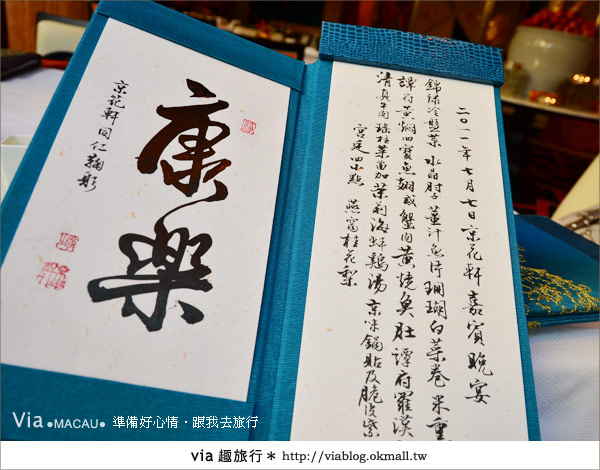 康樂
京花軒 同仁鞠躬
二〇一一年七月七日京花軒嘉賓晚宴
錦繡冷盤菜 水晶肘子 薑汁魚片 珊瑚白菜卷 米熏
譚府黃燜四寶魚翅或蟹肉黃燒魚肚 譚府羅漢
清真牛肉 瑤柱菜苗加茉莉海鮮雞湯 京味鍋貼及脆皮紫
宮廷四小點 燕窩桂花梨
Via●MACAU● 準備好心情‧跟我去旅行
via 趣旅行* http://viablog.okmall.tw